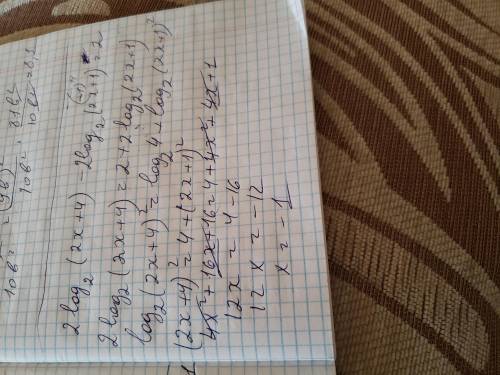 2log₂(2x+4) - 2log₂(2x+1) = 2
2log₂(2x+4) = 2+2log₂(2x+1)
log₂(2x+4)² = log₂4 + log₂(2x+1)²
(2x+4)² = 4+(2x+1)²
4x²+16x+16=4+4x²+4x+1
12x = 4-16
12x = -12
x = -1